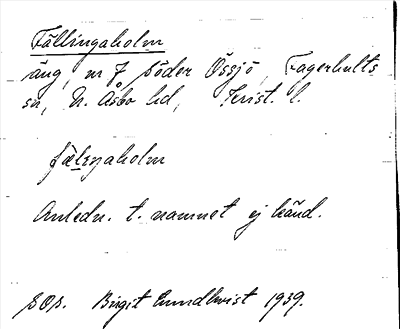 Fällingaholm
äng, nr 7 söder Össjö, Fagerhults
sn, N. Åsbo hd, Krist. l.
fälṇaholm
Anledn. t. namnet ej känd.
SOS. Birgit Lundkvist 1939.